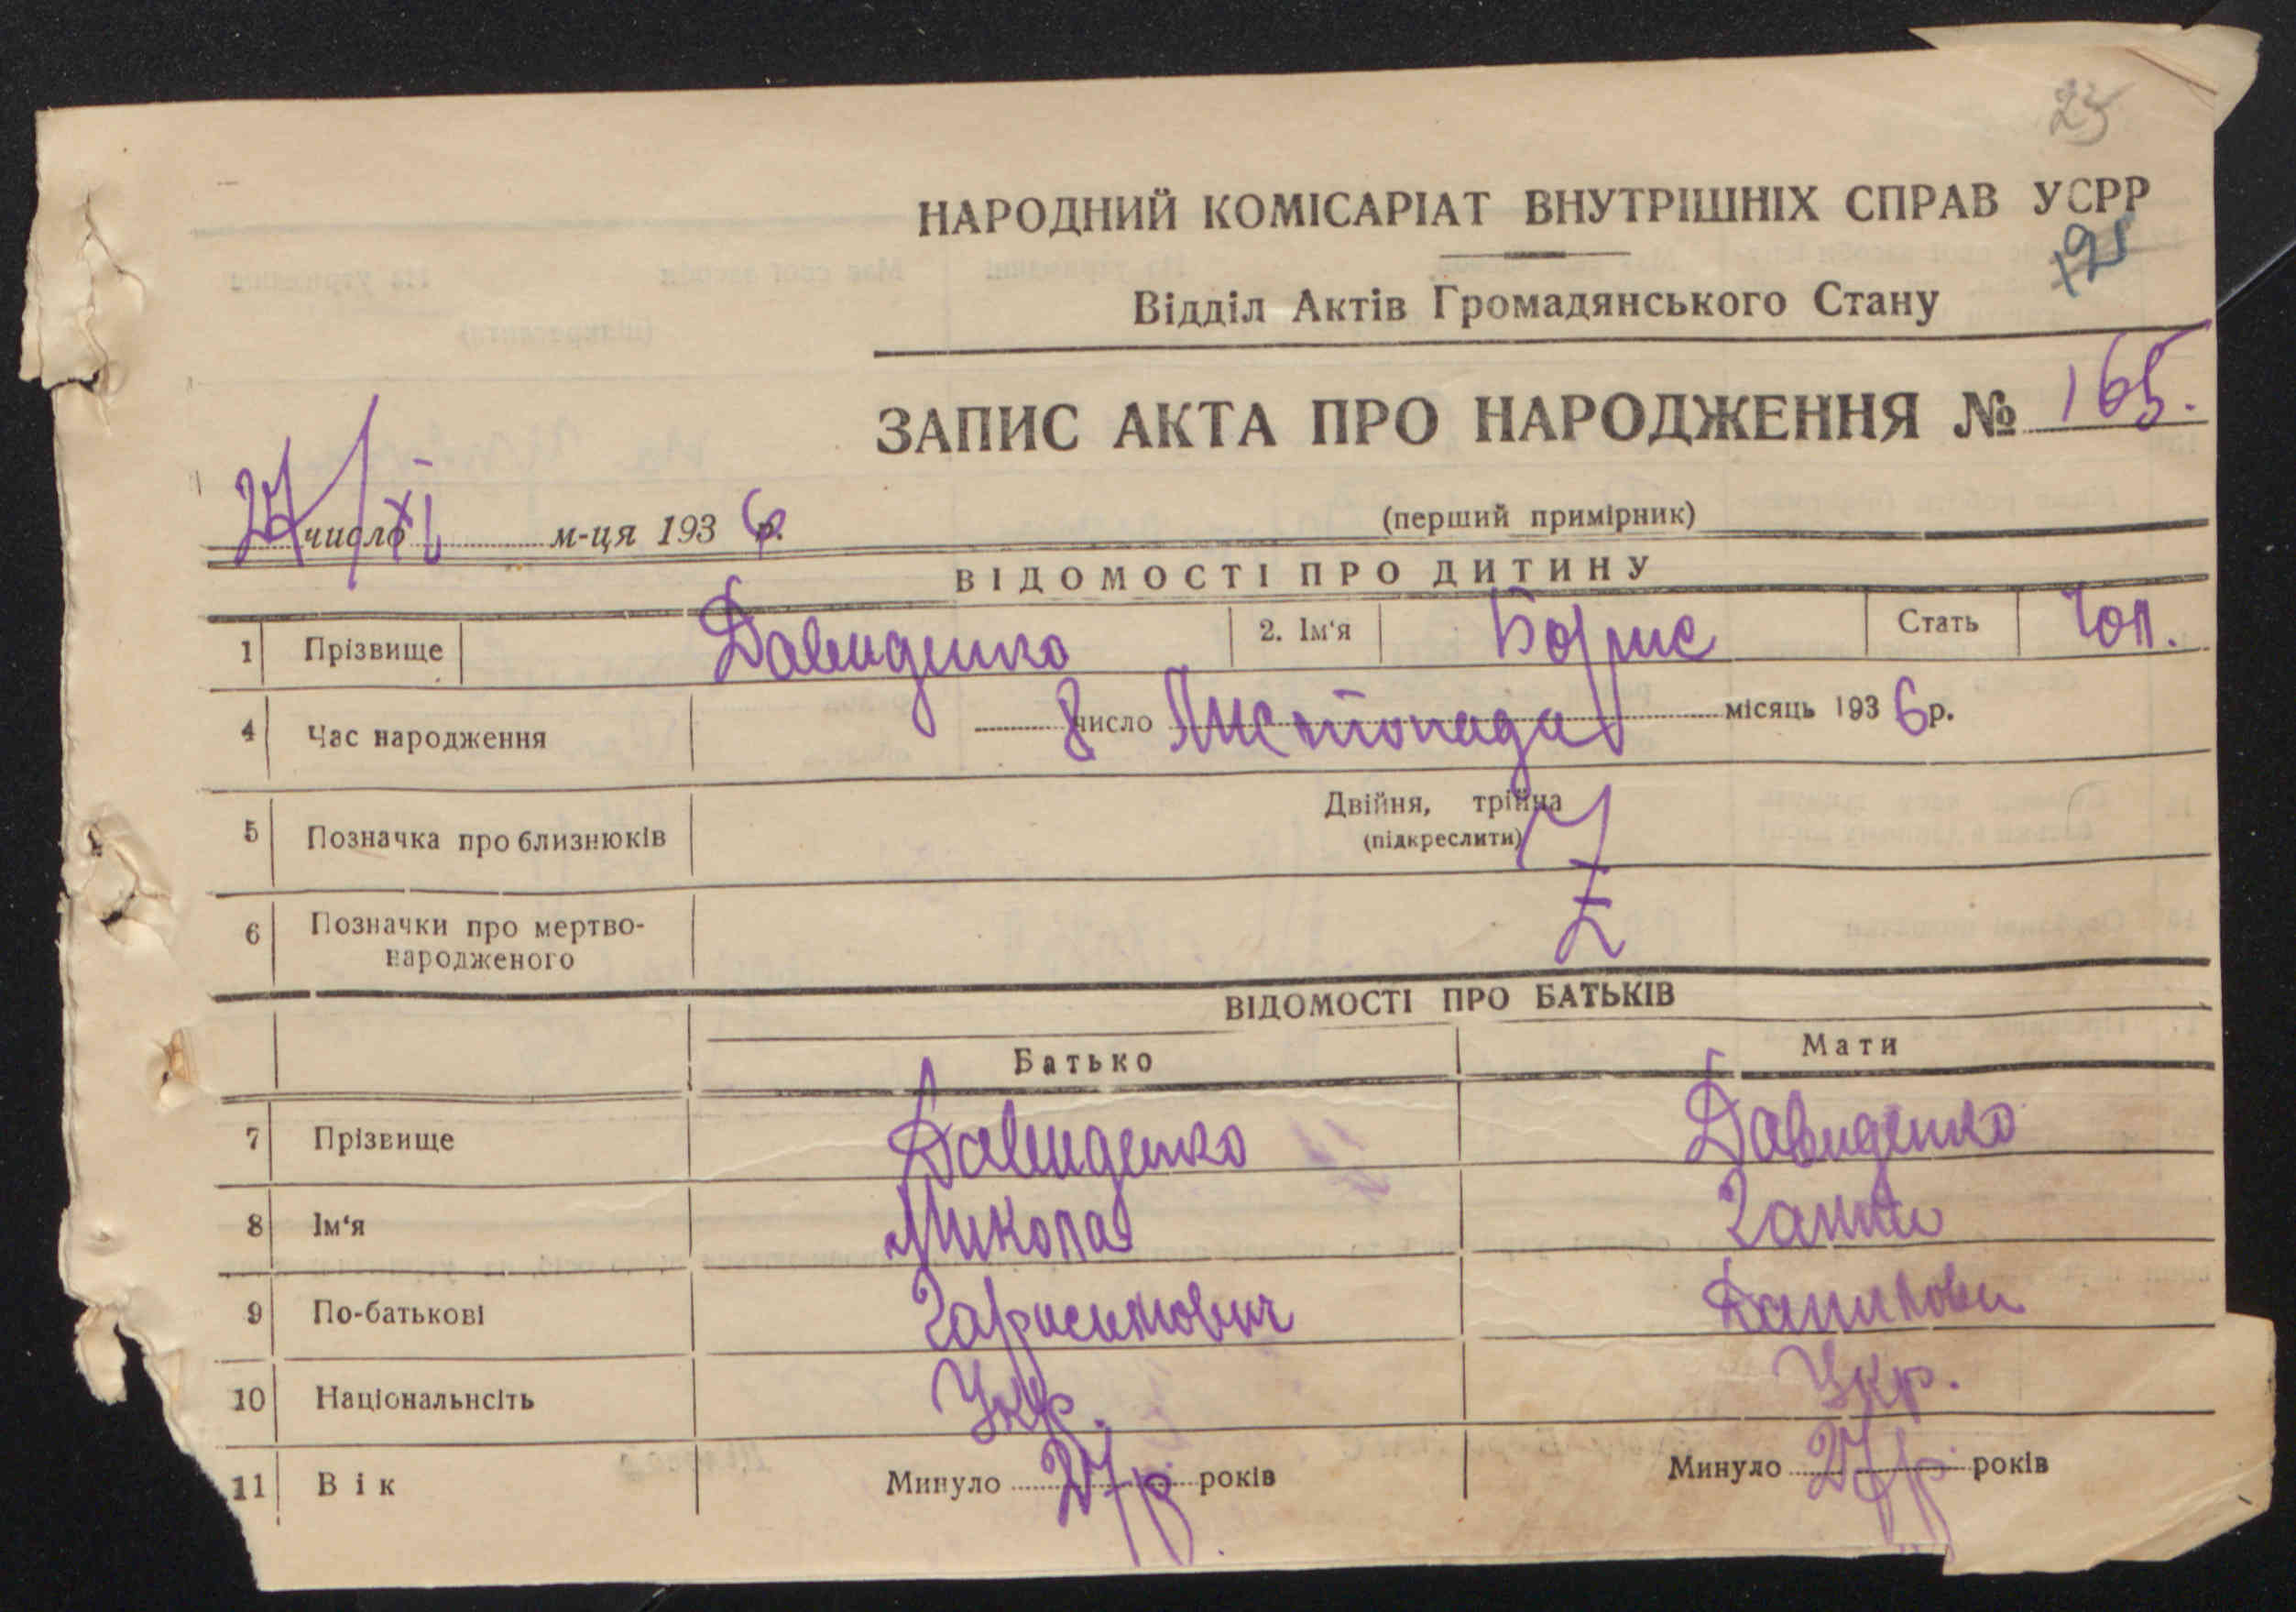 23
НАРОДНИЙ КОМІСАРІАТ ВНУТРІШНІХ СПРАВ УСРР
Відділ Актів Громадянського Стану
ЗАПИС АКТА ПРО НАРОДЖЕННЯ № 165.
27/XI число м-ця 1936 р.
(перший примірник)
ВІДОМОСТІ ПРО ДИТИНУ
1 Прізвище Давиденко 2. Ім'я Борис Стать Чол.
4 Час народження 8 число Листопада місяць 1936 р.
5 Позначка про близнюків Двійня, трійна
(підкреслити)
6 Позначки про мертво-
народженого
ВІДОМОСТІ ПРО БАТЬКІВ
Батько Мати
7 Прізвище Давиденко Давиденко
8 Ім'я Микола Ганна
9 По-батькові Гарисимович Данилови
10 Національнсіть Укр. Укр.
11 Вік Минуло 27 р. років Минуло 27 р. років